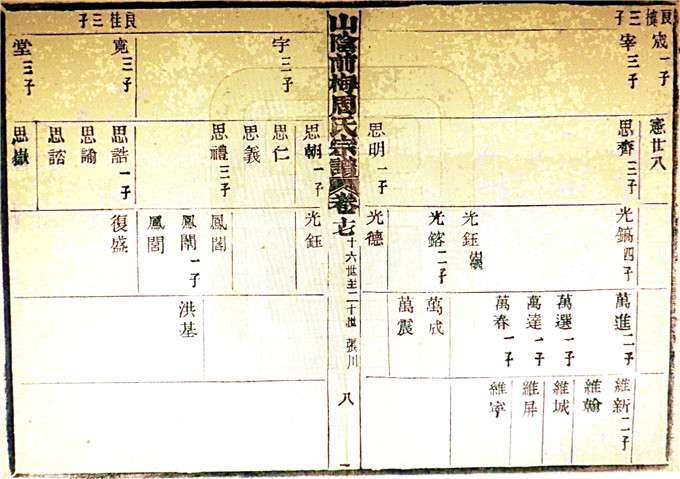 良
三子
宬一子
宰三子
憲廿八
思齊三子
思明一子
光鎬四子
光鈺
光鎔二子
光德
萬進二子
萬選一子
萬達一子
萬春一子
萬成
萬震
維新二子
維翰
維城
維屏
維寧
山陰前梅周氏宗譜
卷七
十六世至二十世
張川
八
良桂三子
宇三子
寬三子
堂三子
思朝一子
思仁
思義
思禮三子
思誥一子
思諭
思諮
思嶽
光鈺
鳳閣
鳳閣
復盛
洪基